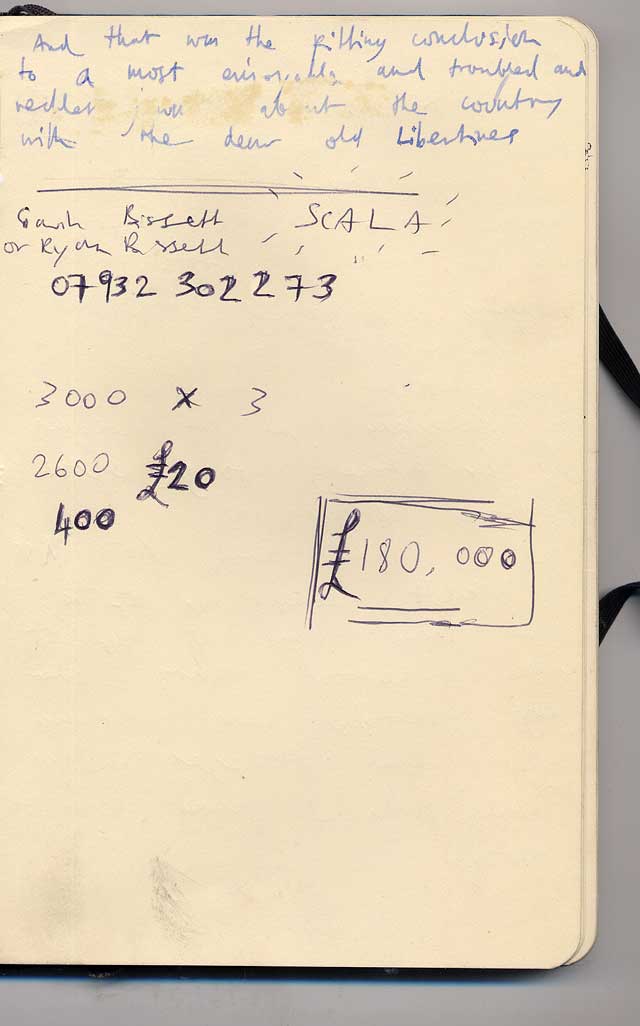 And that was the fitting conclusion
to a most and troubled and
about the country
with the dear old Libertines
SCALA
Bissett
or Ryan Bissett
07932 302273
3000 x 3
2600 £20
400
£180,000